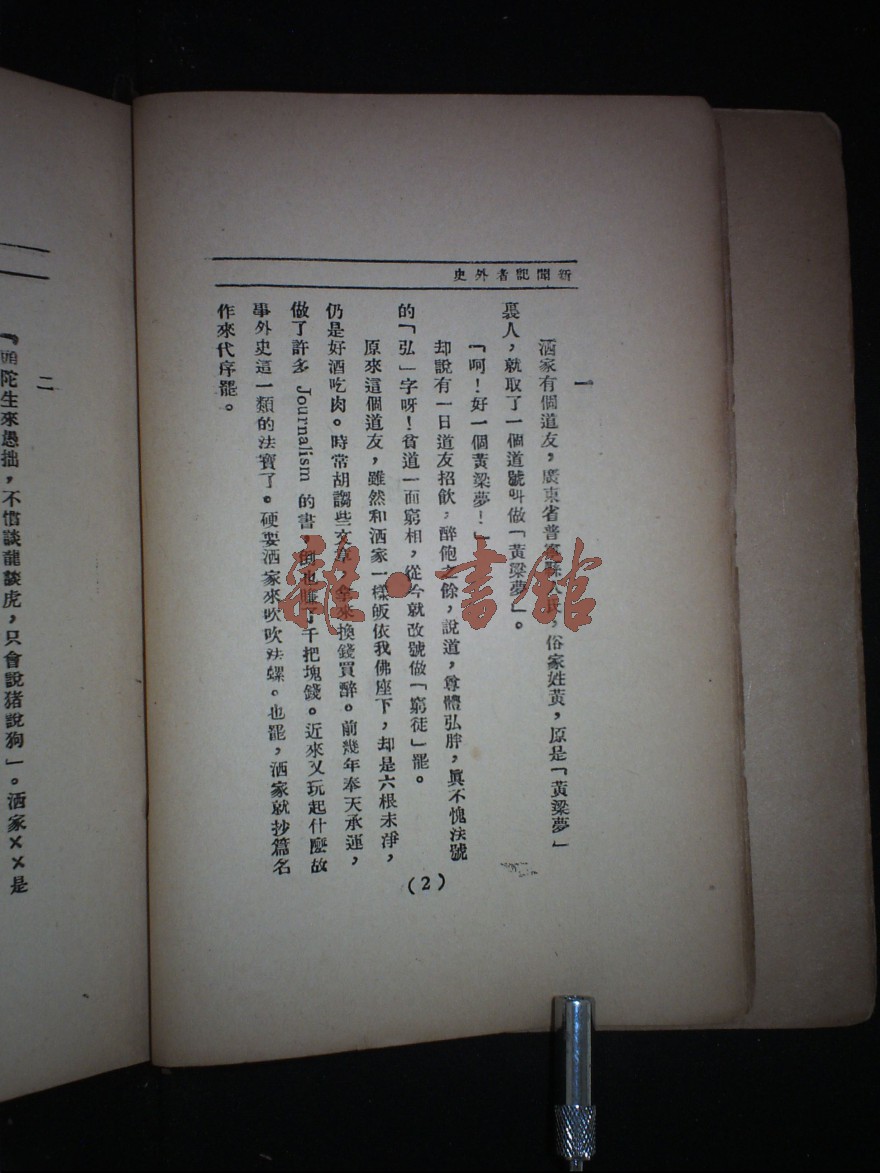 新聞記者外史
一
洒家有個道友，廣東省普寧縣人氏，俗家姓黃，原是「黃粱夢」
裏人，就取了一個道號叫做「黃粱夢」。
「呵！好一個黃粱夢！」
却說有一日道友招飲，醉飽之餘，說道，尊體弘胖，眞不愧法號
的「弘」字呀！貧道一面窮相，從今就改號做「窮徒」罷。
原來這個道友，雖然和洒家一樣皈依我佛座下，却是六根未淨，
仍是好酒吃肉。時常胡謅些文章，拿來換錢買醉。前幾年奉天承運，
做了許多 Journalism 的書，倒也賺了千把塊錢。近來又玩起什麼故
事外史這一類的法寶了。硬要洒家來吹吹法螺。也罷，洒家就抄篇名
作來代序罷。
(2)
二
陀生來愚拙，不慣談龍談虎，只會說猪說狗」。洒家××是
雜·書館